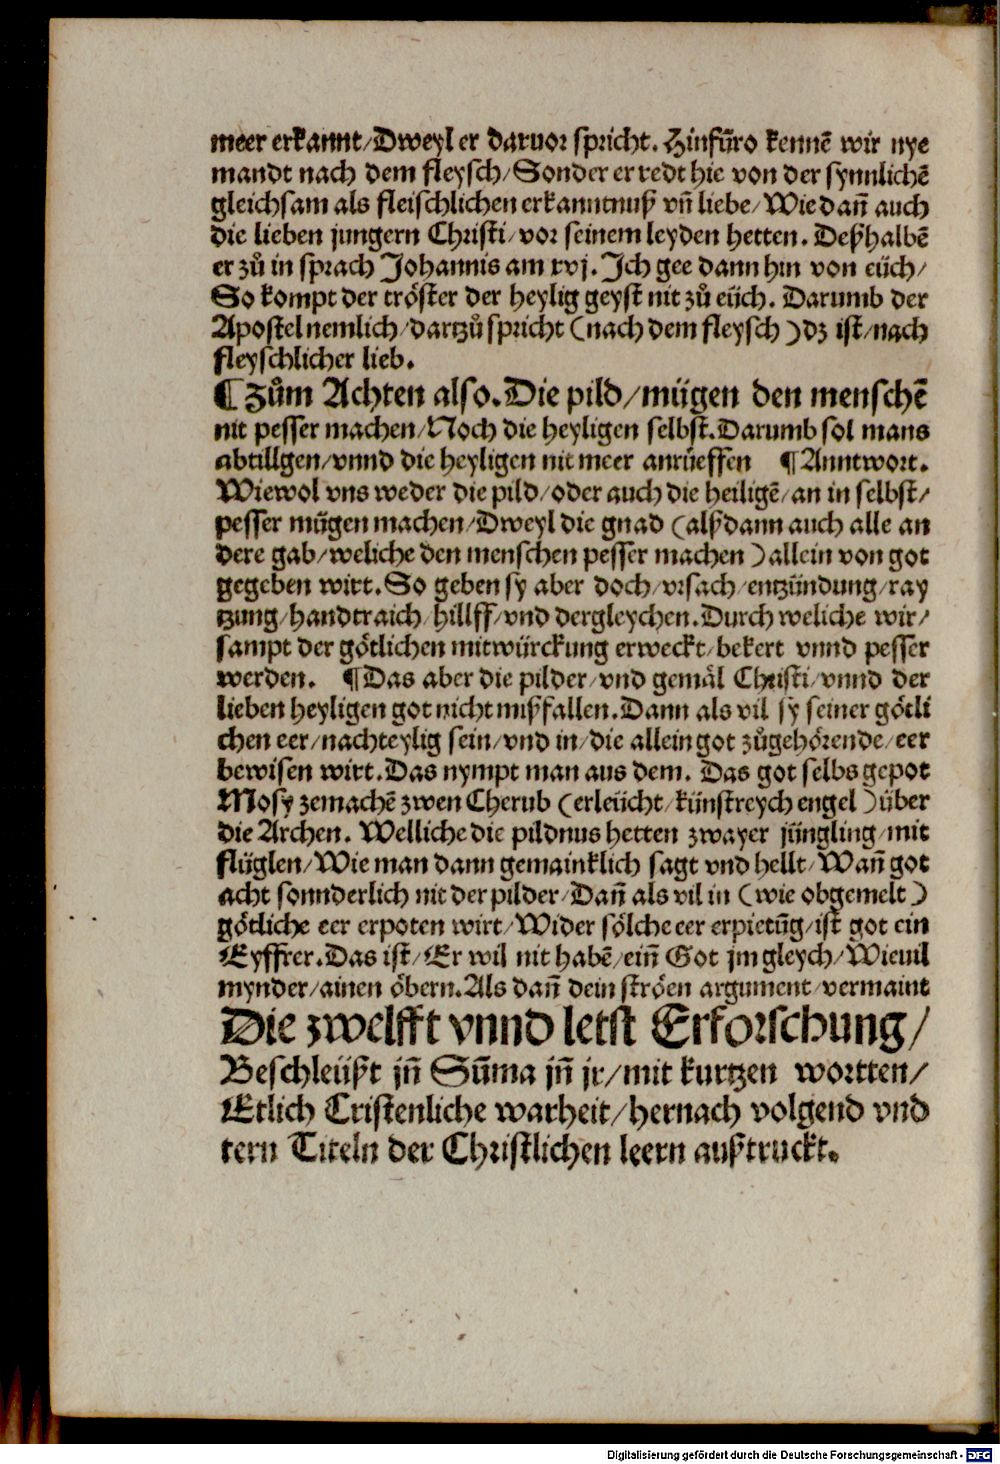 meer erkannt/Dweyl er daruor spricht. Hinfüro kennē wir nye
mandt nach dem fleysch/Sonder er redt hie von der synnlichē
gleichsam als fleischlichen erkanntnuß vn̄ liebe/Wie dan̄ auch
die lieben jungern Christi/vor seinem leyden hetten. Deßhalbē
er zů in sprach Johannis am xvj. Ich gee dann hin von eüch/
So kompt der tröster der heylig geyst nit zů eüch. Darumb der
Apostel nemlich/dartzů spricht (nach dem fleysch) dz ist/nach
fleyschlicher lieb.
¶ Zům Achten also. Die pild/mügen den menschē
nit pesser machen/Noch die heyligen selbst. Darumb sol mans
abtillgen/vnnd die heyligen nit meer anrüeffen ¶ Anntwort.
Wiewol vns weder die pild/oder auch die heiligē/an in selbst/
pesser mügen machen/Dweyl die gnad (alßdann auch alle an
dere gab/weliche den menschen pesser machen) allein von got
gegeben wirt. So geben sy aber doch/vrsach/entzündung/ray
tzung/handtraich/hillff/vnd dergleychen. Durch weliche wir/
sampt der götlichen mitwürckung erweckt/bekert vnnd pesser
werden. ¶ Das aber die pilder/vnd gemäl Christi/vnnd der
lieben heyligen got nicht mißfallen. Dann als vil sy seiner götli
chen eer/nachteylig sein/vnd in/die allein got zůgehörende/eer
bewisen wirt. Das nympt man aus dem. Das got selbs gepot
Mosy zemachē zwen Cherub (erleücht/künstreych engel) über
die Archen. Welliche die pildnus hetten zwayer jüngling/mit
flüglen/Wie man dann gemainklich sagt vnd hellt/Wan̄ got
acht sonnderlich nit der pilder/Dan̄ als vil in (wie obgemelt)
götliche eer erpoten wirt/Wider sölche eer erpietūg/ist got ein
Eyffrer. Das ist/Er wil nit habē/ein̄ Got jm gleych/Wieuil
mynder/ainen öbern. Als dan̄ dein ströen argument/vermaint
Die zwelfft vnnd letst Erforschung/
Beschleüßt jn̄ Sūma jn̄ jr/mit kurtzen wortten/
Etlich Cristenliche warheit/hernach volgend vnd
tern Titeln der Christlichen leern außtruckt.
Digitalisierung gefördert durch die Deutsche Forschungsgemeinschaft - DFG